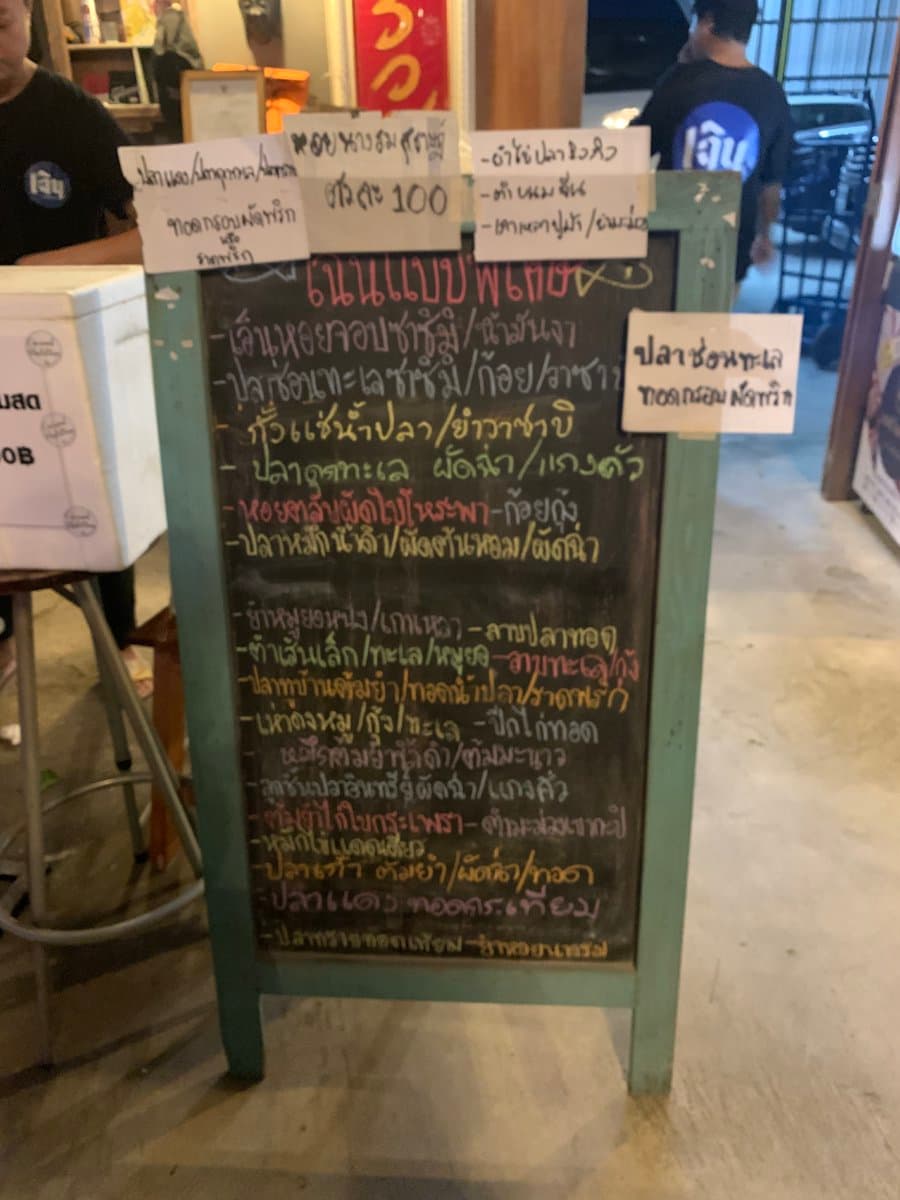 ปลาแดง/ปลาดุกทะเล/
ทอดกรอบผัดพริก
หรือ
ราดพริก
หอยนางรมสุราษฎร์
ตัวละ 100
- ยำไข่ปลาริวกิว
- ตำขนมจีน
- เกาเหลาปูม้า/
เมนูแบบพิเศษ
- เอ็นหอยจอบซาซิมิ/น้ำมันงา
- ปลาช่อนทะเลซาซิมิ/ก้อย/วาซาบิ
- กุ้งแช่น้ำปลา/ยำวาซาบิ
- ปลาดุกทะเล ผัดฉ่า/แกงคั่ว
- หอยตลับผัดใบโหระพา - ก้อยกุ้ง
- ปลาหมึกน้ำดำ/ผัดต้นหอม/ผัดฉ่า
ปลาช่อนทะเล
ทอดกรอบผัดพริก
- ยำหมูยอหนัง/เกาเหลา - ลาบปลาทอด
- ตำเส้นเล็ก/ทะเล/หมูยอ - ลาบทะเล/กุ้ง
- ปลาทูบ้านต้มยำ/ทอดน้ำปลา/ราดพริก
- เห่าดงหมู/กุ้ง/ทะเล - ปีกไก่ทอด
- หมึกต้มยำน้ำดำ/ต้มมะนาว
- ลูกชิ้นปลาอินทรีย์ผัดฉ่า/แกงคั่ว
- ต้มยำไก่ใบกระเพรา - ตำมะม่วงเขากะปิ
- หมึกไข่แดดเดียว
- ปลาเก๋า ต้มยำ/ผัดฉ่า/ทอด
- ปลาแดง ทอดกระเทียม
- ปลาทรายทอดเทียม - ยำหอยนางรม
มสด
0฿
เจิน
เจิน